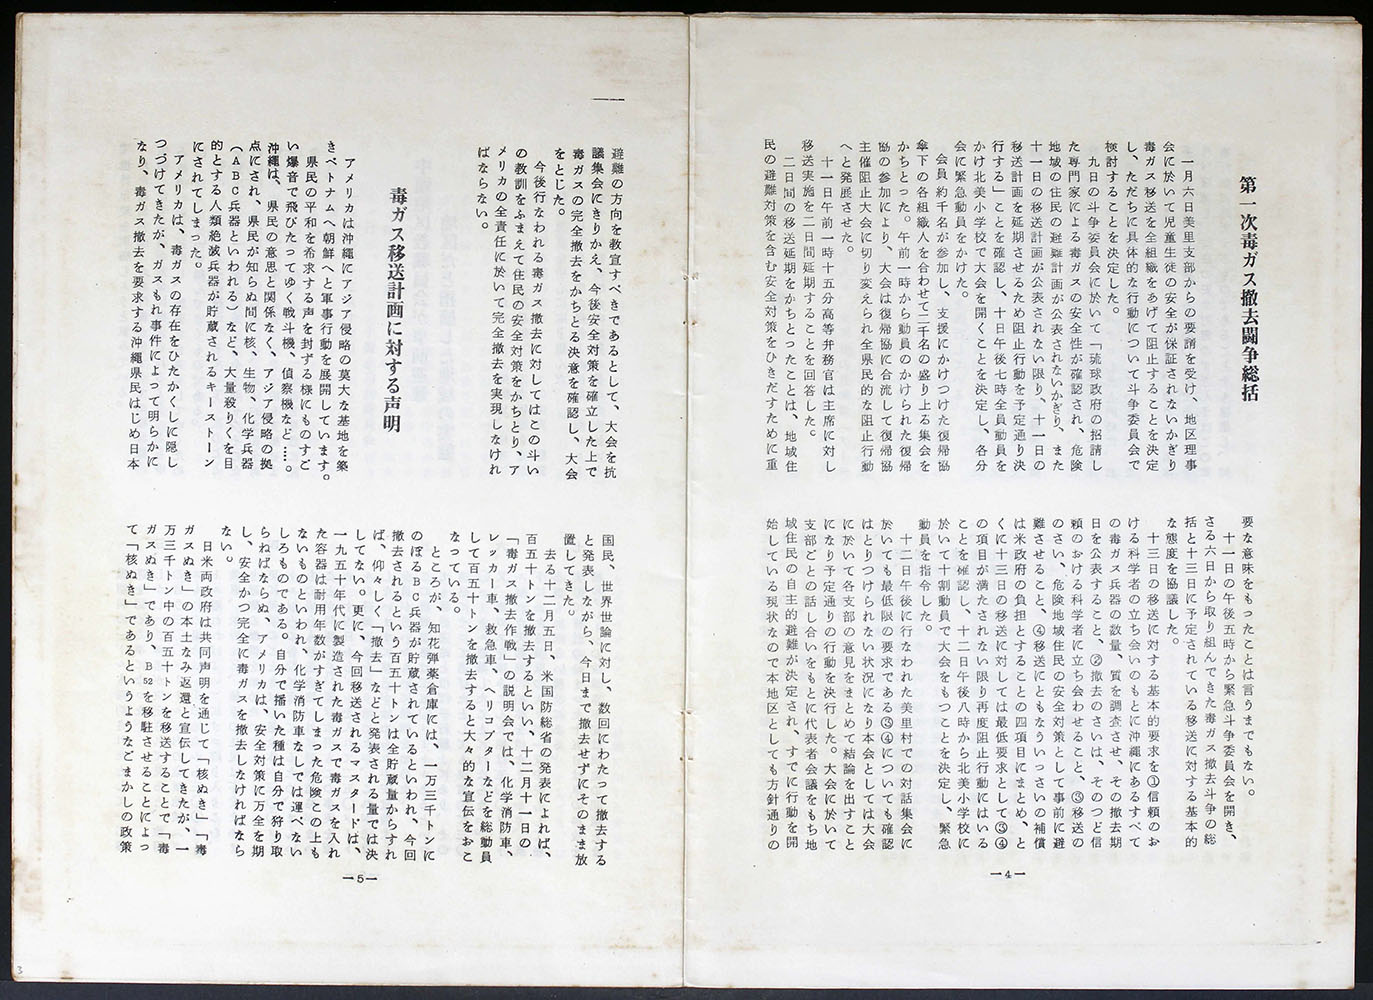 第一次毒ガス撤去闘争総括
一月六日美里支部からの要請を受け、地区理事
会に於いて児童生徒の安全が保証されないかぎり
毒ガス移送を全組織をあげて阻止することを決定
し、ただちに具体的な行動について斗争委員会で
検討することを決定した。
九日の斗争委員会に於いて「琉球政府の招請し
た専門家による毒ガスの安全性が確認され、危険
地域の住民の避難計画が公表されないかぎり、また
十一日の移送計画が公表されない限り、十一日の
移送計画を延期させるため阻止行動を予定通り決
行する」ことを確認し、十日午後七時全員動員を
かけ北美小学校で大会を開くことを決定し、各分
会に緊急動員をかけた。
会員約千名が参加し、支援にかけつけた復帰協
傘下の各組織人を合わせて二千名の盛り上る集会を
かちとった。午前一時から動員のかけられた復帰
協の参加により、大会は復帰協に合流して復帰協
主催阻止大会に切り変えられ全県民的な阻止行動
へと発展させた。
十一日午前一時十五分高等弁務官は主席に対し
移送実施を二日間延期することを回答した。
二日間の移送延期をかちとったことは、地域住
民の避難対策を含む安全対策をひきだすために重
要な意味をもったことは言うまでもない。
十一日の午後五時から緊急斗争委員会を開き、
さる六日から取り組んできた毒ガス撤去斗争の総
括と十三日に予定されている移送に対する基本的
な態度を協議した。
十三日の移送に対する基本的要求を①信頼のお
ける科学者の立ち会いのもとに沖縄にあるすべて
の毒ガス兵器の数量、質を調査させ、その撤去期
日を公表すること、②撤去のさいは、そのつど信
頼のおける科学者に立ち会わせること、③移送の
のさい、危険地域住民の安全対策として事前に避
難させること、④移送にともなういっさいの補償
は米政府の負担とすることの四項目にまとめ、と
くに十三日の移送に対しては最低要求として③④
の項目が満たされない限り再度阻止行動にはいる
ことを確認し、十二日午後八時から北美小学校に
於いて十割動員で大会をもつことを決定し、緊急
動員を指令した。
十二日午後に行なわれた美里村での対話集会に
於いても最低限の要求である③④についても確認
はとりつけられない状況になり本会としては大会
に於いて各支部の意見をまとめて結論を出すこと
になり予定通りの行動を決行した。大会に於いて
支部ごとの話し合いをもとに代表者会議をもち地
域住民の自主的避難が決定され、すでに行動を開
始している現状なので本地区としても方針通りの
—4—
避難の方向を教宣すべきであるとして、大会を抗
議集会にきりかえ、今後安全対策を確立した上で
毒ガスの完全撤去をかちとる決意を確認し、大会
をとじた。
今後行なわれる毒ガス撤去に対してはこの斗い
の教訓をふまえて住民の安全対策をかちとり、ア
メリカの全責任に於いて完全撤去を実現しなけれ
ばならない。
毒ガス移送計画に対する声明
アメリカは沖縄にアジア侵略の莫大な基地を築
きベトナムへ朝鮮へと軍事行動を展開しています。
県民の平和を希求する声を封ずる様にものすご
い爆音で飛びたってゆく戦斗機、偵察機など……。
沖縄は、県民の意思と関係なく、アジア侵略の拠
点にされ、県民が知らぬ間に核、生物、化学兵器
（ＡＢＣ兵器といわれる）など、大量殺りくを目
的とする人類絶滅兵器が貯蔵されるキーストーン
にされてしまった。
アメリカは、毒ガスの存在をひたかくしに隠し
つづけてきたが、ガスもれ事件によって明らかに
なり、毒ガス撤去を要求する沖縄県民はじめ日本
国民、世界世論に対し、数回にわたって撤去する
と発表しながら、今日まで撤去せずにそのまま放
置してきた。
去る十二月五日、米国防総省の発表によれば、
百五十トンを撤去するといい、十二月十一日の
「毒ガス撤去作戦」の説明会では、化学消防車、
レッカー車、救急車、ヘリコプターなどを総動員
して百五十トンを撤去すると大々的な宣伝をおこ
なっている。
ところが、知花弾薬倉庫には、一万三千トンに
のぼるＢＣ兵器が貯蔵されているといわれ、今回
撤去されるという百五十トンは全貯蔵量からすれ
ば、仰々しく「撤去」などと発表される量では決
してない。更に、今回移送されるマスタードは、
一九五十年代に製造された毒ガスで毒ガスを入れ
た容器は耐用年数がすぎてしまった危険この上も
ないものといわれ、化学消防車なしでは運べない
しろものである。自分で播いた種は自分で狩り取
らねばならぬ、アメリカは、安全対策に万全を期
し、安全かつ完全に毒ガスを撤去しなければなら
ない。
日米両政府は共同声明を通じて「核ぬき」「毒
ガスぬき」の本土なみ返還と宣伝してきたが、一
万三千トン中の百五十トンを移送することで「毒
ガスぬき」であり、Ｂ52を移駐させることによっ
て「核ぬき」であるというようなごまかしの政策
—5—
3